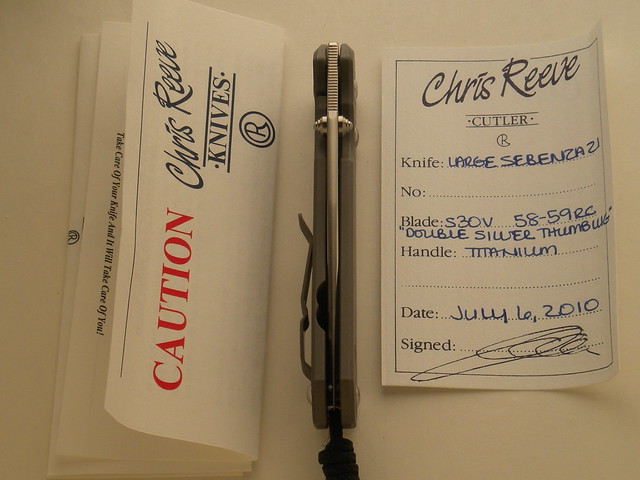 CAUTION
Chris Reeve
·KNIVES·
®
Take Care Of Your Knife And It Will Take Care Of You!
®
Chris Reeve
·CUTLER·
®
Knife: LARGE SEBENZA 21
No:
Blade: S30V 58-59RC
"DOUBLE SILVER THUMBLUG"
Handle: TITANIUM
Date: JULY 6, 2010
Signed: